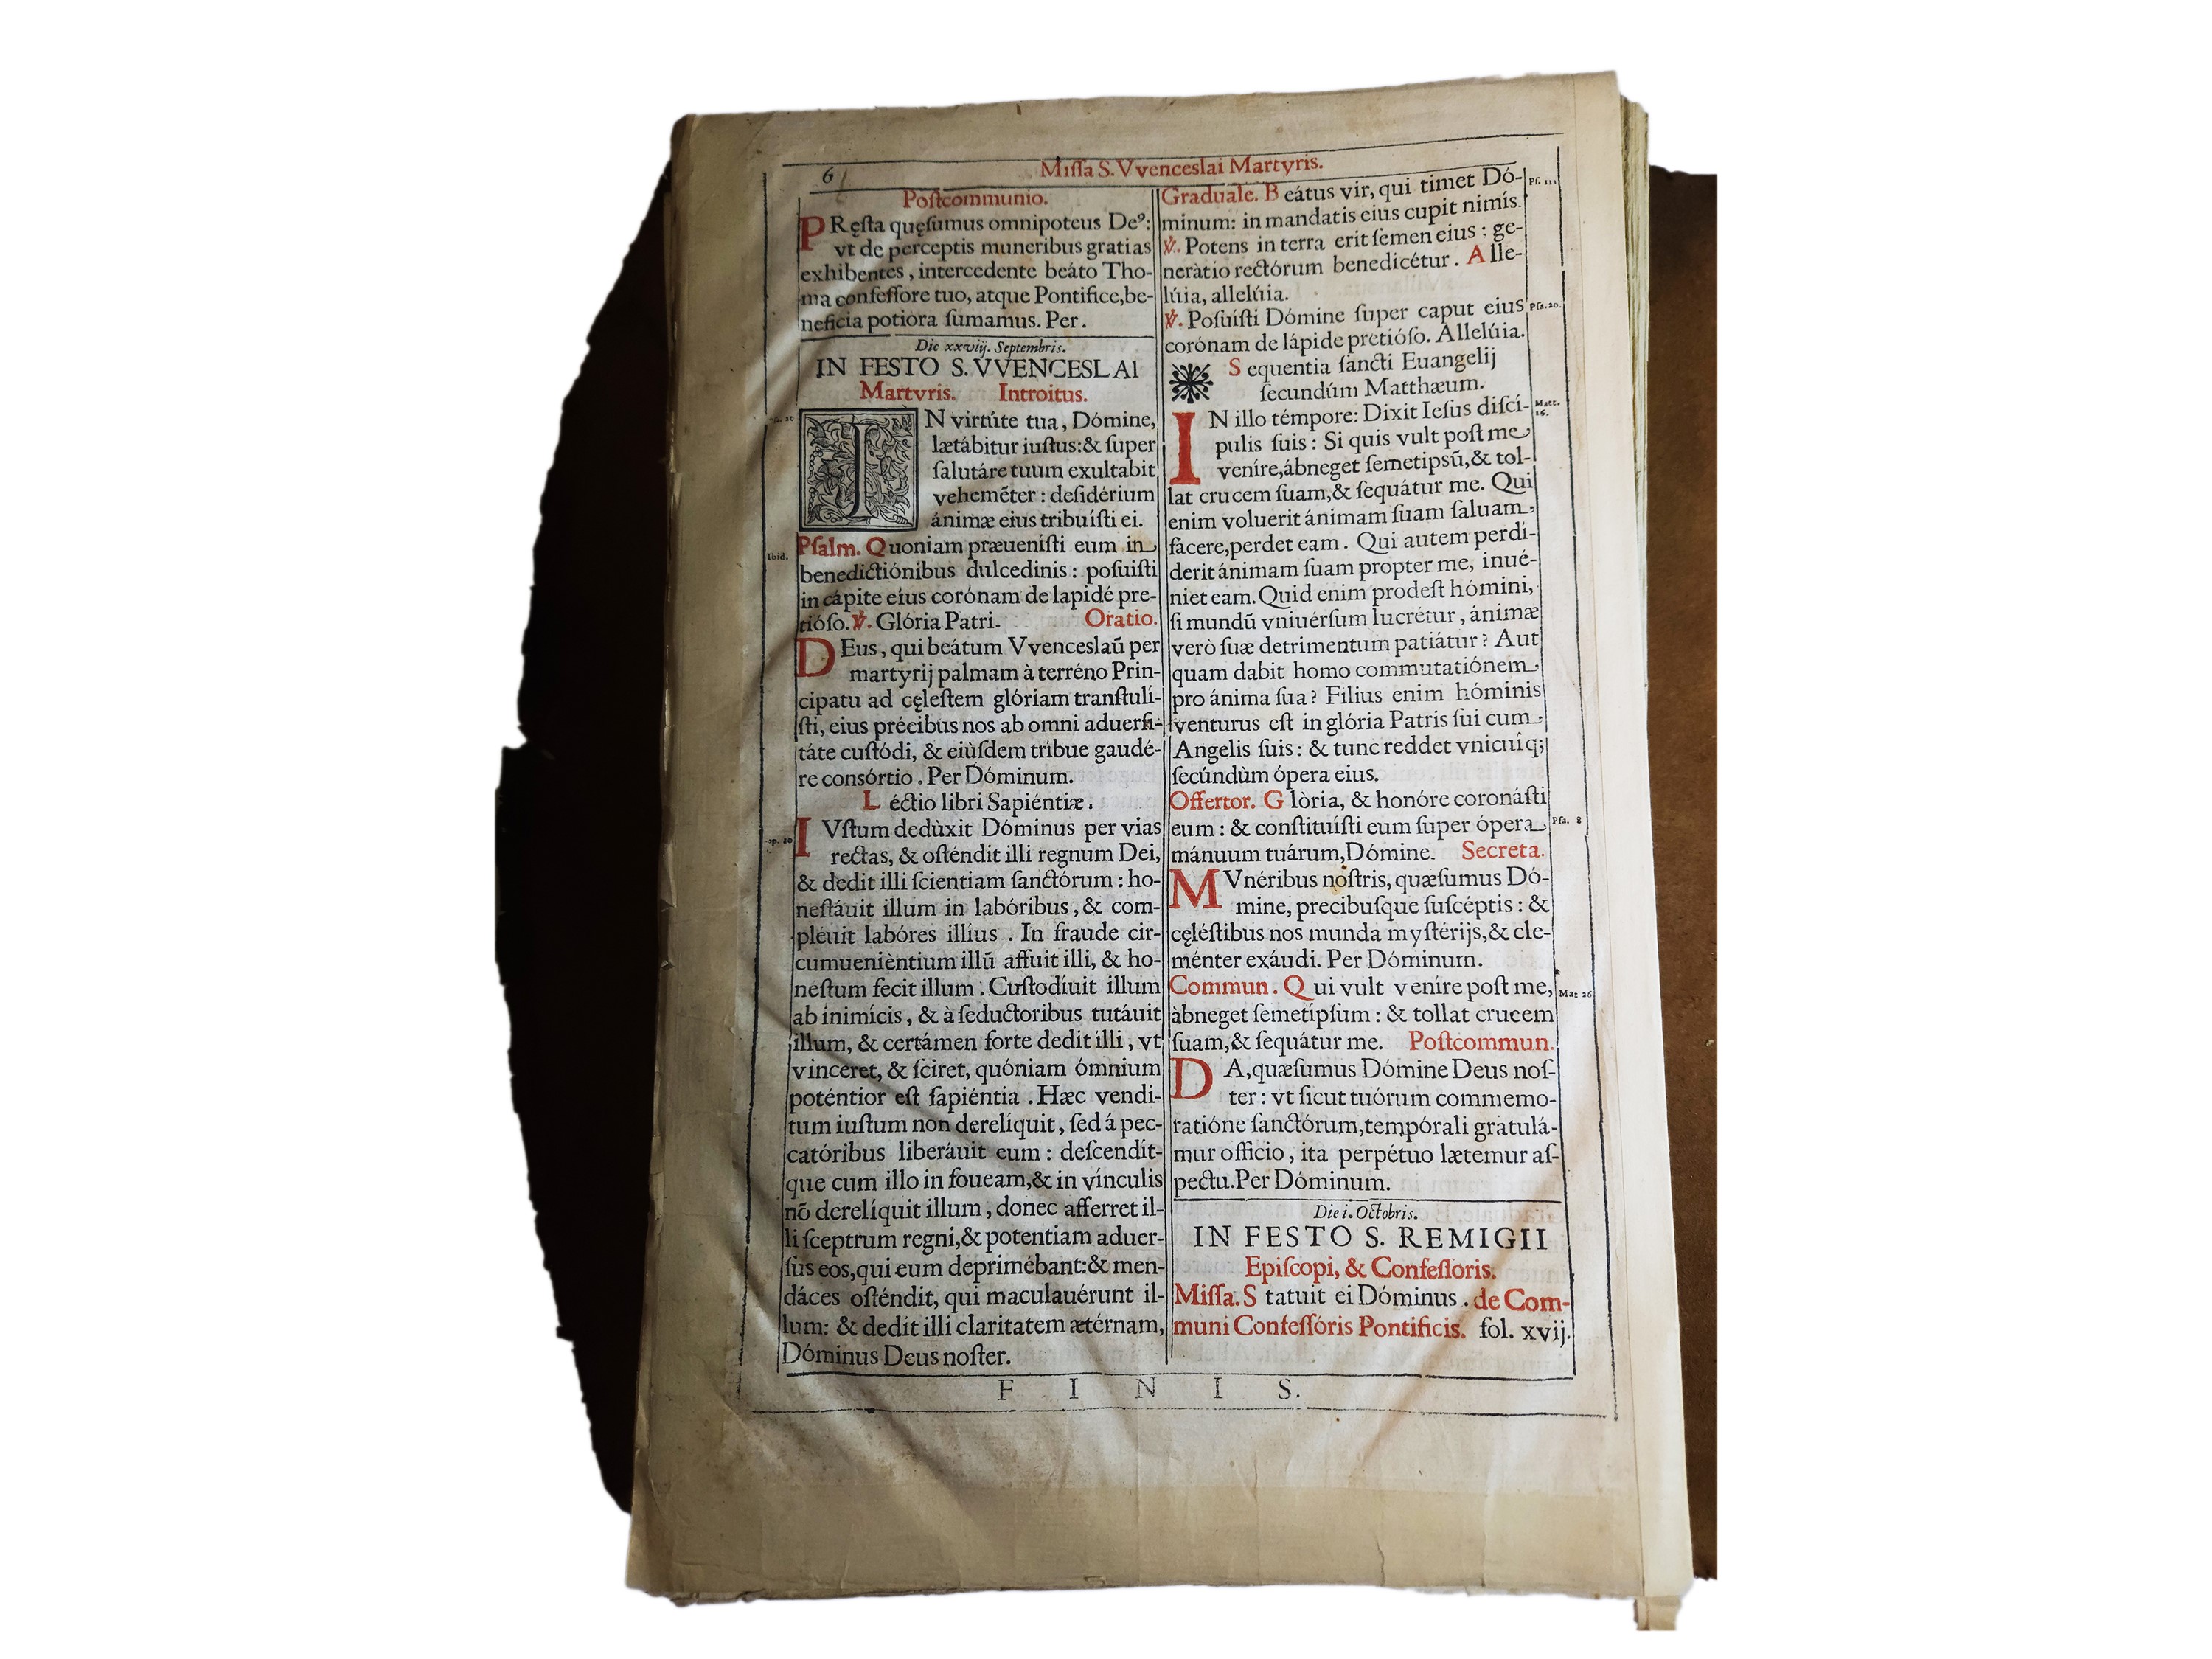 6
Missa S. Vvenceslai Martyris.
Postcommunio.
PRęsta quęsumus omnipoteus Deꝰ:
vt de perceptis muneribus gratias
exhibentes, intercedente beáto Tho-
ma confessore tuo, atque Pontifice, be-
neficia potiora sumamus. Per.
Die xxviij. Septembris.
IN FESTO S. VVENCESLAI
Martyris. Introitus.
IN virtúte tua, Dómine,
lætábitur iustus: & super
salutáre tuum exultabit
vehemẽter: desidérium
ánimæ eius tribuísti ei.
Ibid.
Psalm. Quoniam præuenísti eum in
benedictiónibus dulcedinis: posuisti
in cápite eius corónam de lapidé pre-
tióso. ℣. Glória Patri. Oratio.
DEus, qui beátum Vvenceslaũ per
martyrij palmam à terréno Prin-
cipatu ad cęlestem glóriam transtulí-
sti, eius précibus nos ab omni aduersi-
táte custódi, & eiùsdem tribue gaudé-
re consórtio. Per Dóminum.
Léctio libri Sapiéntiæ.
IVstum dedùxit Dóminus per vias
rectas, & osténdit illi regnum Dei,
& dedit illi scientiam sanctórum: ho-
nestáuit illum in labóribus, & com-
pleuit labóres illíus. In fraude cir-
cumuenièntium illũ affuit illi, & ho-
néstum fecit illum. Custodíuit illum
ab inimícis, & à seductoribus tutáuit
illum, & certámen forte dedit illi, vt
vinceret, & sciret, quóniam ómnium
poténtior est sapiéntia. Hæc vendi-
tum iustum non derelíquit, sed á pec-
catóribus liberáuit eum: descendít-
que cum illo in foueam, & in vínculis
nõ derelíquit illum, donec afferret il-
li sceptrum regni, & potentiam aduer-
sùs eos, qui eum deprimébant: & men-
dáces osténdit, qui maculauérunt il-
lum: & dedit illi claritatem ætérnam,
Dóminus Deus noster.
Graduale. Beátus vir, qui timet Dó-
minum: in mandatis eius cupit nimís.
℣. Potens in terra erit semen eius: ge-
neràtio rectórum benedicétur. Alle-
lúia, allelúia.
Psa. 20.
℣. Posuísti Dómine super caput eius
corónam de lápide pretióso. Allelúia.
Sequentia sancti Euangelij
secundúm Matthæum.
Matt. 16.
IN illo témpore: Dixit Iesus discí-
pulis suis: Si quis vult post me
veníre, ábneget semetipsũ, & tol-
lat crucem suam, & sequátur me. Qui
enim voluerit ánimam suam saluam
fàcere, perdet eam. Qui autem perdi-
derit ánimam suam propter me, inué-
niet eam. Quid enim prodest hómini,
si mundũ vniuérsum lucrétur, ánimæ
verò suæ detrimentum patiátur? Aut
quam dabit homo commutatiónem
pro ánima sua? Filius enim hóminis
venturus est in glória Patris sui cum
Angelis suis: & tunc reddet vnicuîq;
secúndùm ópera eius.
Offertor. Glòria, & honóre coronásti
Psa. 8
eum: & constituísti eum super ópera
mánuum tuárum, Dómine. Secreta.
MVnéribus nostris, quæsumus Dó-
mine, precibusque suscéptis: &
cęléstibus nos munda mystérijs, & cle-
ménter exáudi. Per Dóminum.
Commun. Qui vult veníre post me,
Mat 26
àbneget semetípsum: & tollat crucem
suam, & sequátur me. Postcommun.
DA, quæsumus Dómine Deus nos-
ter: vt sicut tuórum commemo-
ratióne sanctórum, tempórali gratulá-
mur officio, ita perpétuo lætemur as-
pectu. Per Dóminum.
Die i. Octobris.
IN FESTO S. REMIGII
Episcopi, & Confessoris.
Missa. Statuit ei Dóminus. de Com-
muni Confessóris Pontificis. fol. xvij.
F I N I S.